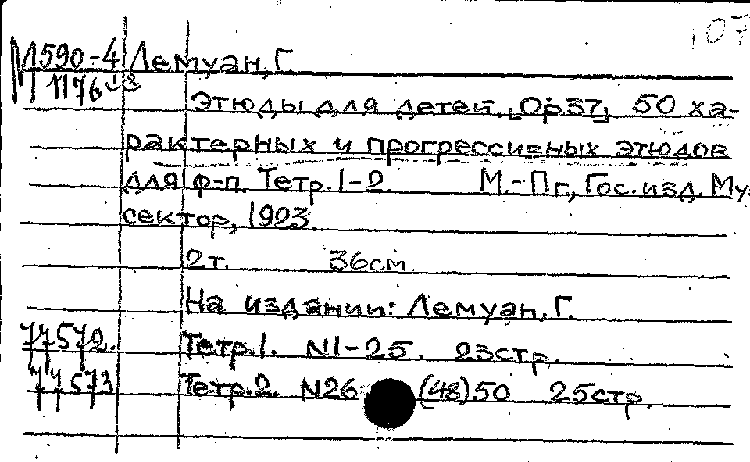 107
М590-4 Лемуан, Г.
М1176
Этюды для детей. [Ор37] 50 ха-
рактерных и прогрессивных этюдов
для ф-п. Тетр. 1-2 М.-Пг., Гос. изд. Му.
сектор, 1923.
2т. 36см
На издании: Лемуан, Г.
77572. Тетр.1. N1-25. 23стр.
77573 Тетр.2. N26 (48)50 25стр.